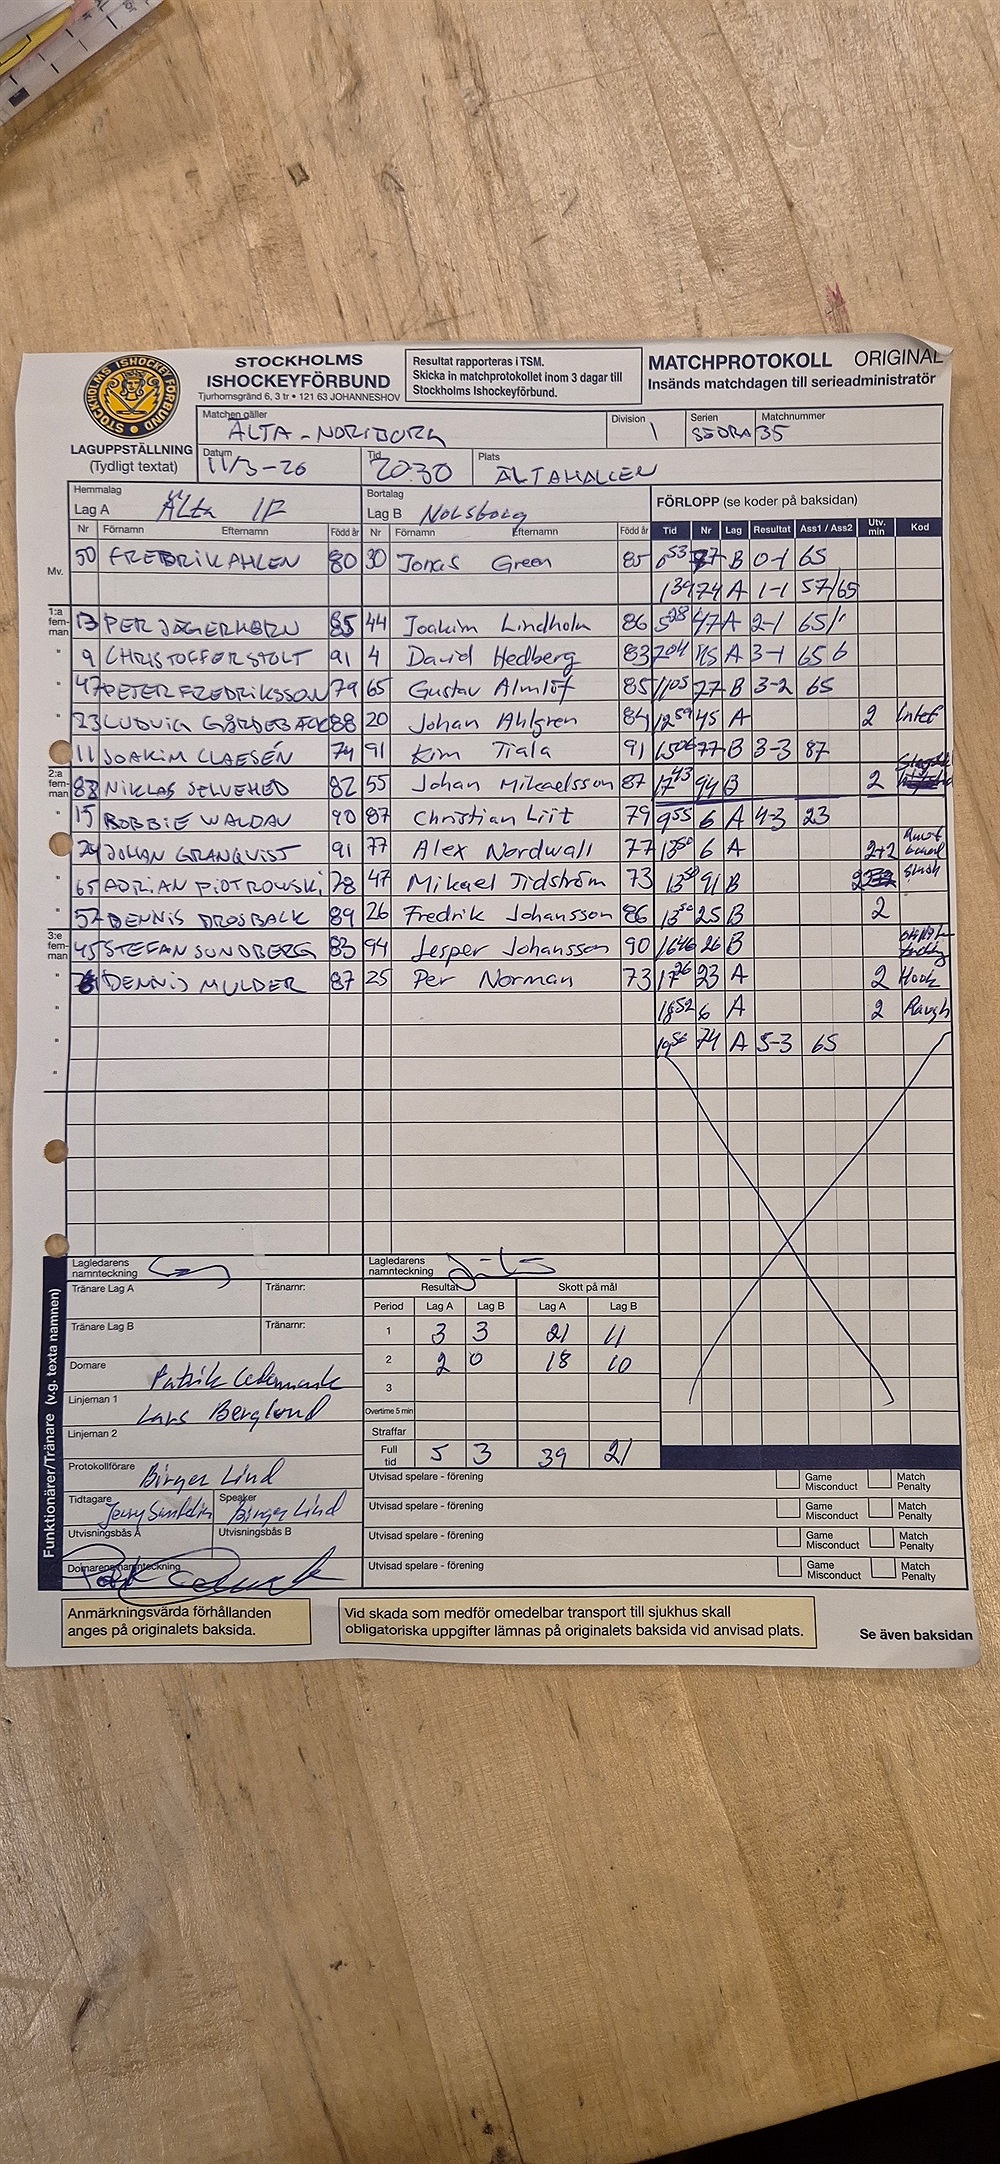 STOCKHOLMS ISHOCKEYFÖRBUND
STOCKHOLMS
ISHOCKEYFÖRBUND
Tjurhornsgränd 6, 3 tr • 121 63 JOHANNESHOV
Resultat rapporteras i TSM.
Skicka in matchprotokollet inom 3 dagar till
Stockholms Ishockeyförbund.
MATCHPROTOKOLL ORIGINAL
Insänds matchdagen till serieadministratör
LAGUPPSTÄLLNING
(Tydligt textat)
Matchen gäller Division Serien Matchnummer
ÄLTA - NORSBORG 1 SÖDRA 35
Datum Tid Plats
11/3-26 20.30 ÄLTAHALLEN
Hemmalag Bortalag FÖRLOPP (se koder på baksidan)
Lag A Älta IF Lag B Norsborg
Nr Förnamn Efternamn Född år Nr Förnamn Efternamn Född år Tid Nr Lag Resultat Ass1 / Ass2 Utv. min Kod
Mv. 50 FREDRIK AHLEN 80 30 Jonas Green 85 0 53 B 0-1 65
1 39 74 A 1-1 57/65
1:a fem-man 13 PER JÄGERHORN 85 44 Joakim Lindholm 86 5 28 47 A 2-1 65/
" 9 CHRISTOFFER STOLT 91 4 David Hedberg 83 7 04 15 A 3-1 65 6
" 47 PETER FREDRIKSSON 79 65 Gustav Almlöf 85 11 05 77 B 3-2 65
" 23 LUDVIG GÄRDEBÄCK 88 20 Johan Ahlgren 84 12 59 45 A 2 Intef
" 11 JOAKIM CLAESÉN 74 91 Kim Tiala 91 15 06 77 B 3-3 87
2:a fem-man 83 NIKLAS SELVEHED 82 55 Johan Mikaelsson 87 17 43 94 B 2
" 15 BOBBIE WALDAU 90 87 Christian Liit 79 9 55 6 A 4-3 23
" 24 JOHAN GRANQVIST 91 77 Alex Nordwall 77 13 50 6 A 2+2
" 65 ADRIAN PIOTROWSKI 78 47 Mikael Tidström 73 13 50 91 B 2 Slash
" 57 DENNIS DROSBACK 89 26 Fredrik Johansson 86 13 50 25 B 2
3:e fem-man 45 STEFAN SUNDBERG 83 94 Jesper Johansson 90 16 46 26 B
" DENNIS MULDER 87 25 Per Norman 73 17 26 23 A 2 Hook
" 18 52 6 A 2 Rough
" 19 56 74 A 5-3 65
"
Lagledarens namnteckning Lagledarens namnteckning
Tränare Lag A Tränarnr:
Tränare Lag B Tränarnr:
Resultat Skott på mål
Period Lag A Lag B Lag A Lag B
1 3 3 21 11
2 2 0 18 10
3
Overtime 5 min
Straffar
Full tid 5 3 39 21
Funktionärer/Tränare (v.g. texta namnen)
Domare Patrik Cedermark
Linjeman 1 Lars Berglund
Linjeman 2
Protokollförare Birger Lind
Tidtagare Jerry Sundin Speaker Birger Lind
Utvisningsbås A Utvisningsbås B
Domarens namnteckning
Utvisad spelare - förening Game Misconduct Match Penalty
Utvisad spelare - förening Game Misconduct Match Penalty
Utvisad spelare - förening Game Misconduct Match Penalty
Utvisad spelare - förening Game Misconduct Match Penalty
Anmärkningsvärda förhållanden
anges på originalets baksida.
Vid skada som medför omedelbar transport till sjukhus skall
obligatoriska uppgifter lämnas på originalets baksida vid anvisad plats.
Se även baksidan